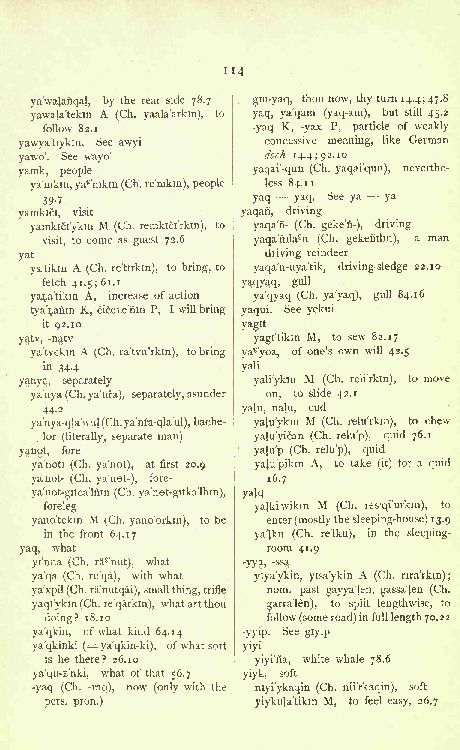 114
ya'waḷañqaḷ, by the rear side 78.7
yawala'tekın A (Ch. yaala'arkın), to
follow 82.1
yawya'tıykın. See awyi
yawo'. See wayo'
yamk, people
ya'mkın, (Ch. re'mkın), people
39.7
yamkıčı, visit
yamkıčı'ykın M (Ch. remkıčı'rkın), to
visit, to come as guest 72.6
yat
ya'tikın A (Ch. re'tırkın), to bring, to
fetch 41.5; 61.1
yaṭa'tikın A, increase of action
tya'ṭañın K, P, I will bring
it 92.10
yatv, -natv
ya'tvekın A (Ch. ra'tvu'rkın), to bring
in 34.4
yanya, separately
ya'nya (Ch. ya'nřa), separately, asunder
44.2
bache-
lor (literally, separate man)
yanot, fore
ya'noti (Ch. ya'not), at first 20.9
ya'not- (Ch. ya'net-), fore-
ya'not-gıtca'lñın (Ch. ya'net-gıtka'lhın),
foreleg
yano'tekın M (Ch. yano'orkın), to be
in the front 64.17
yaq, what
yı'nna (Ch. ), what
ya'qa (Ch. re'qä), with what
ya'xpil (Ch. rä'nutqäi), small thing, trifle
yaqı'ykın (Ch. re'qärkın), what art thou
doing? 18.10
ya'qkin, of what kind 64.14
ya'qkinki (= ya'qkin-ki), of what sort
is he there? 26.10
ya'qu-ı'nki, what of that 56.7
-yaq (Ch. -ınq), now (only with the
pers. pron.)
gın-yaq, thou now, thy turn 14.4; 47.8
yaq, ya'qam (yaq-am), but still 45.2
-yaq K, -yax P, particle of weakly
concessive meaning, like German
doch 14.4; 92.10
yaqai'-qun (Ch. yaqai'qun), neverthe-
less 84.11
yaq — yaq. See ya — ya
yaqañ, driving
yaqa'ñ- (Ch. geke'ñ-), driving
(Ch. ), a man
driving reindeer
yaqa'n-uya'tik, driving-sledge 22.10
yaqyaq, gull
ya'qyaq (Ch. ya'yaq), gull 84.16
yaqui. See yekui
yagıt
yagıt'tikın M, to sew 82.17
of one's own will 42.5
yali
yali'ykın M (Ch. reli'rkın), to move
on, to slide 42.1
yaḷu, naḷu, cud
yaḷu'ykın M (Ch. relu'rkın), to chew
yaḷu'yičan (Ch. relu'p), quid 76.1
yaḷu'p (Ch. relu'p), quid
yaḷu'pikın A, to take (it) for a quid
16.7
yaḷq
yaḷkiwikın M (Ch. res'qi'urkın), to
enter (mostly the sleeping-house) 13.9
ya'ḷku (Ch. re'lku), in the sleeping-
room 41.9
-yya, -ssa
yıya'ykin, yısa'ykin A (Ch. rıra'rkın);
nom. past gayya'len, gassa'len (Ch.
garra'lên), to split lengthwise, to
follow (some road) in full length 70.22
-yyip. See gıyıp
yiyi
yiyi'ña, white whale 78.6
yiyk, soft
nıyi'ykaqin (Ch. nii'rkaqin), soft
yiykuḷa'tikın M, to feel easy, 26.7